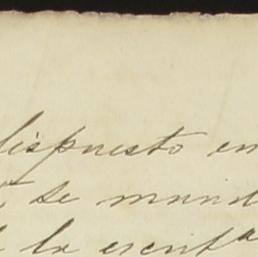 dispuesto en
se mand
la escritª